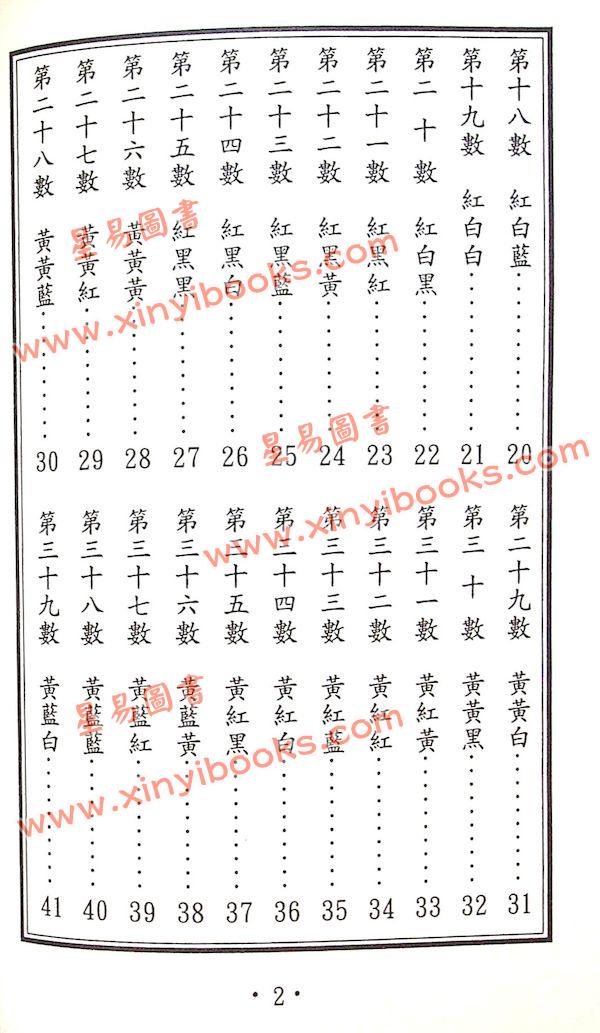 第十八數 紅白藍⋯⋯⋯⋯20
第十九數 紅白白⋯⋯⋯⋯21
第二十數 紅白黑⋯⋯⋯⋯22
第二十一數 紅黑紅⋯⋯⋯⋯23
第二十二數 紅黑黃⋯⋯⋯⋯24
第二十三數 紅黑藍⋯⋯⋯⋯25
第二十四數 紅黑白⋯⋯⋯⋯26
第二十五數 紅黑黑⋯⋯⋯⋯27
第二十六數 黃黃黃⋯⋯⋯⋯28
第二十七數 黃黃紅⋯⋯⋯⋯29
第二十八數 黃黃藍⋯⋯⋯⋯30
第二十九數 黃黃白⋯⋯⋯⋯31
第三十數 黃黃黑⋯⋯⋯⋯32
第三十一數 黃紅黃⋯⋯⋯⋯33
第三十二數 黃紅紅⋯⋯⋯⋯34
第三十三數 黃紅藍⋯⋯⋯⋯35
第三十四數 黃紅白⋯⋯⋯⋯36
第三十五數 黃紅黑⋯⋯⋯⋯37
第三十六數 黃藍黃⋯⋯⋯⋯38
第三十七數 黃藍紅⋯⋯⋯⋯39
第三十八數 黃藍藍⋯⋯⋯⋯40
第三十九數 黃藍白⋯⋯⋯⋯41
·2·
星易圖書
www.xinyibooks.com
星易圖書
www.xinyibooks.com
星易圖書
www.xinyibooks.com